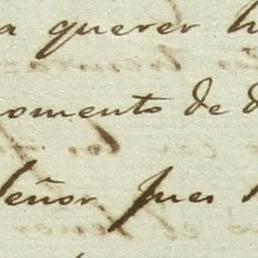 a querer h
omento de d
señor Jues